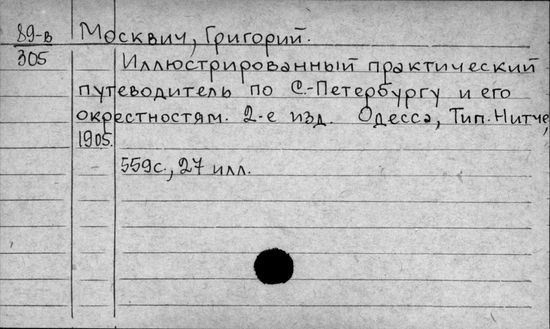 89-в Москвич, Григорий.
305 Иллюстрированный практический
путеводитель по С.-Петербургу и его
окрестностям. 2-е изд. Одесса, Тип. Нитче,
1905.
559с., 27 илл.